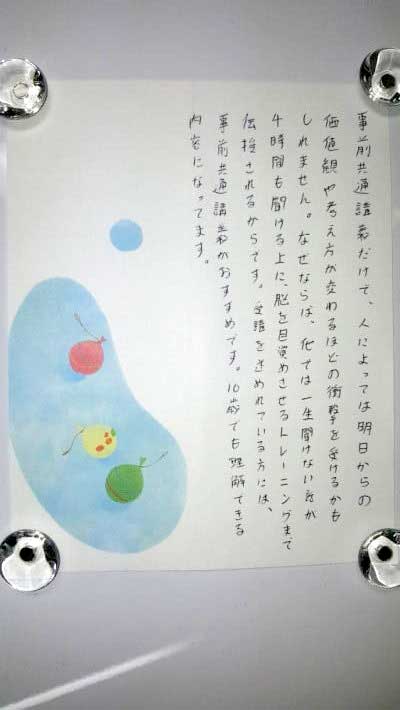 事前共通講義だけで、人によっては明日からの
価値観や考え方が変わるほどの衝撃を受けるかも
しれません。なぜならば、他では一生聞けない話が
4時間も聞ける上に、脳を目覚めさせるトレーニングまで
伝授されるからです。受講を迷われている方には、
事前共通講義がおすすめです。10歳でも理解できる
内容になってます。